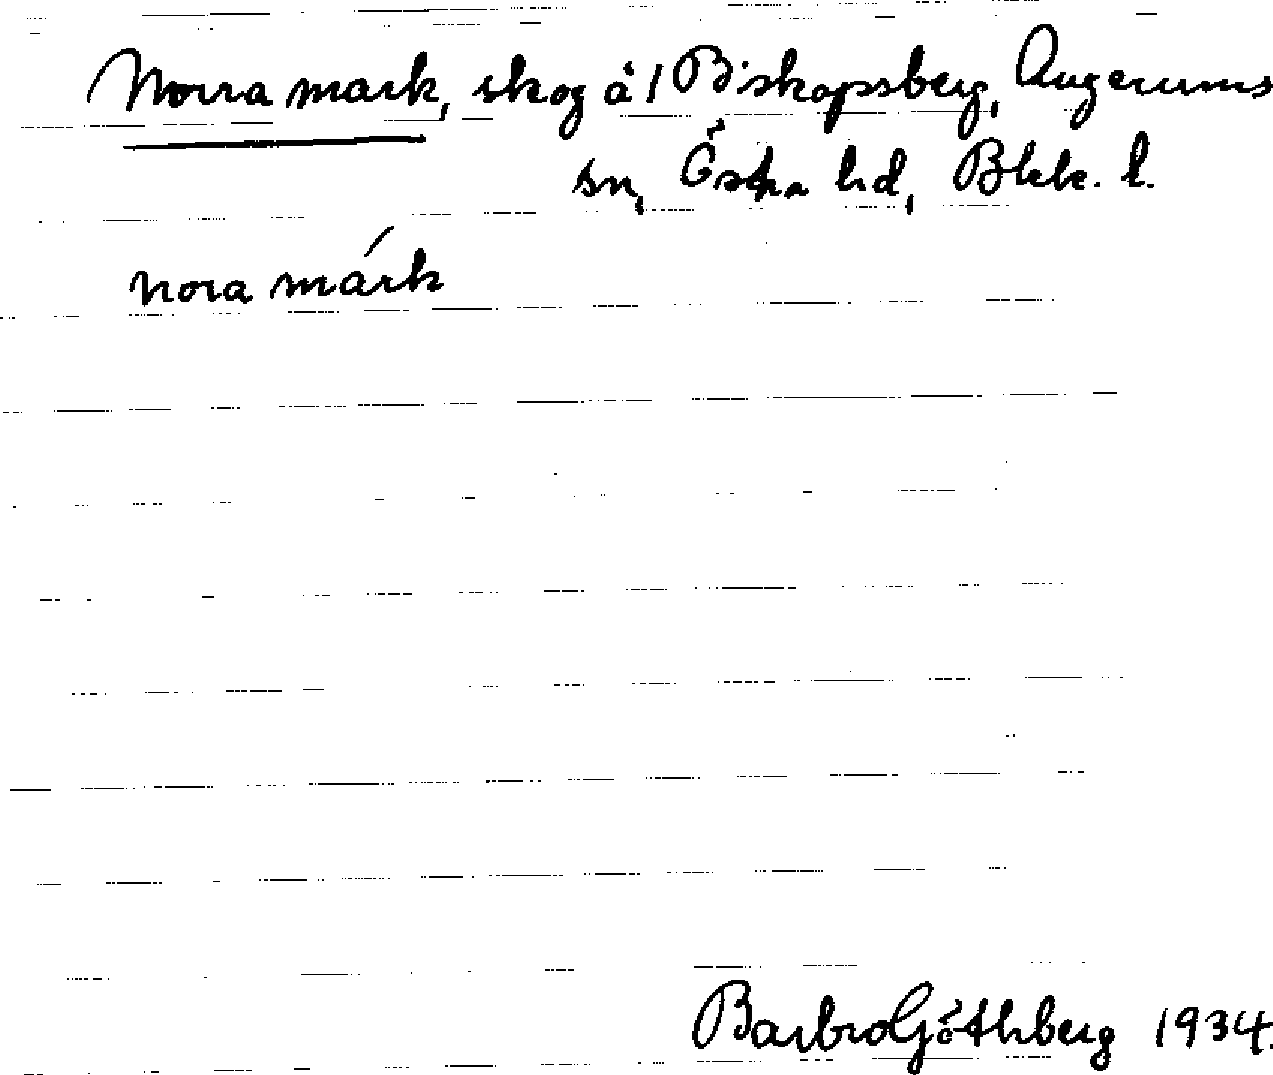 Norra mark, skog å 1 Biskopsberg, Augerums
sn, Östra hd, Blek. l.
nora márk
Barbro Göthberg 1934.